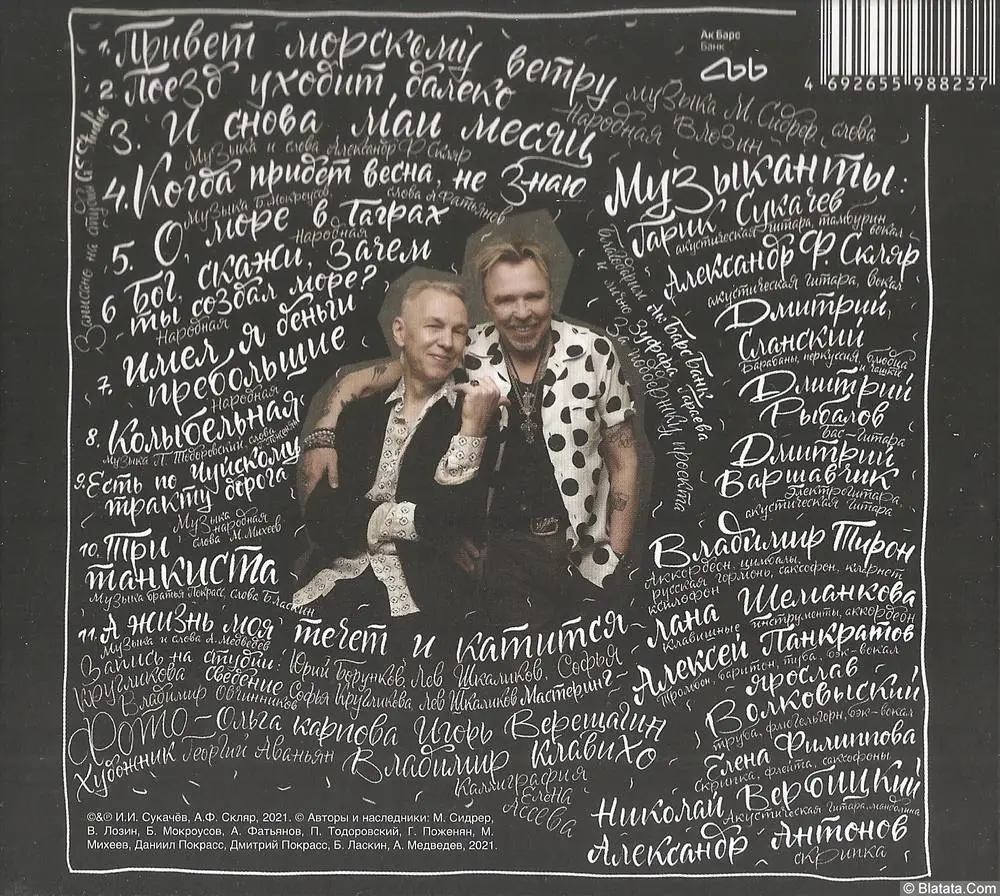 1. Привет морскому ветру
музыка М. Сидрер, слова В.Лозин
2. Поезд уходит далеко
Народная
3. И снова май месяц
Музыка и слова Александр Ф. Скляр
4. Когда придет весна, не знаю
Музыка Б. Мокроусов, слова А. Фатьянов
5. О, море в Гаграх
Народная
6 Бог, скажи, зачем
ты создал море?
Народная
7. Имел я деньги
пребольшие
Народная
8. Колыбельная
Музыка П. Тодоровский слова
9. Есть по Чуйскому
тракту дорога
Музыка
народная
слова М. Михеев
10. Три
танкиста
Музыка братья Покрасс, слова Б. Ласкин
11. А жизнь моя течет и катится
Музыка и слова А. Медведев
Запись на студии: Юрий Борунков, Лев Шкаликов, Софья
Кругликова сведение Софья Кругликова, Лев Шкаликов Мастеринг-
Владимир Овчинников
Фото - Ольга Карпова Игорь Верещагин
Владимир Клавихо
Художник Георгий Аваньян
Каллиграфия
Елена
Асеева
Записано на студии
Ак Барс
Банк
4 692655 988237
Музыканты:
Гарик Сукачев
акустическая гитара, тамбурин, вокал
Александр Ф. Скляр
акустическая гитара, вокал
Дмитрий
Сланский
Барабаны, перкуссия, блюдца
и чашки
Дмитрий
Рыбалов
бас-гитара
Дмитрий
Варшавчик
Электрогитара,
акустическая гитара
Владимир Тирон
Аккордеон, цимбалы,
русская гормонь, саксофон, кларнет
ксилофон
Лана Шеманкова
Клавишные инструменты, аккордеон
Алексей Панкратов
Тромбон, баритон, туба, бэк-вокал
Ярослав
Волковыский
труба, флюгельгорн, бэк-вокал
Елена Филиппова
Скрипка, флейта, саксофоны
Николай Вербицкий
Акустическая гитара, мандолина
Александр Антонов
скрипка
Благодарим Ак Барс Банк
и лично Зуфара Гараева
За поддержку проекта
©&℗ И.И. Сукачёв, А.Ф. Скляр, 2021. © Авторы и наследники: М. Сидрер,
В. Лозин, Б. Мокроусов, А. Фатьянов, П. Тодоровский, Г. Поженян, М.
Михеев, Даниил Покрасс, Дмитрий Покрасс, Б. Ласкин, А. Медведев, 2021.
© Blatata.Com